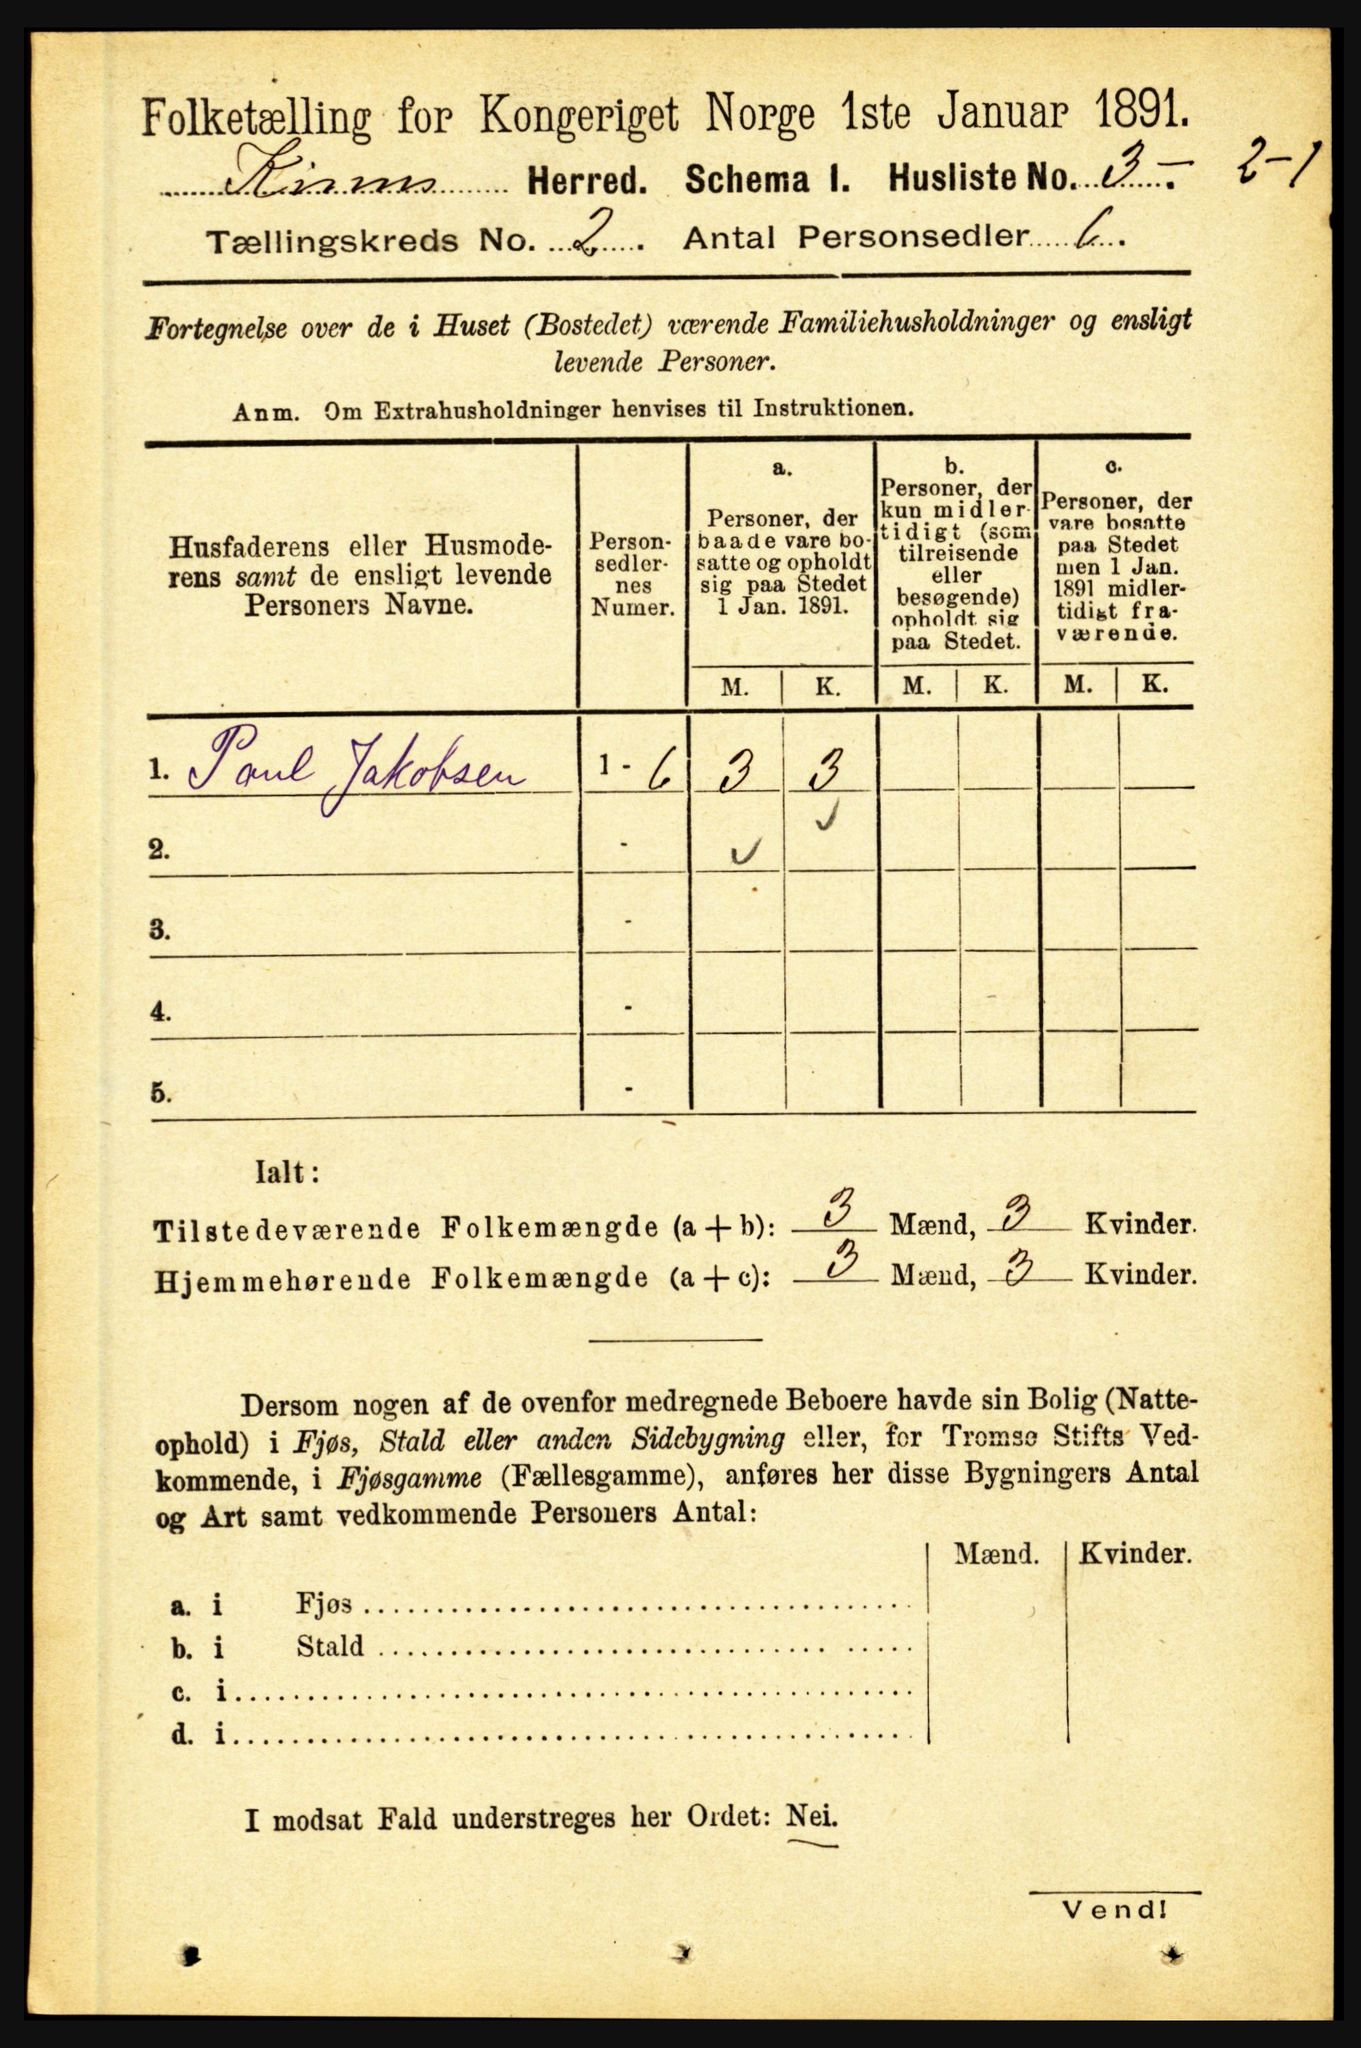 Folketælling for Kongeriget Norge 1ste Januar 1891.
Kinn Herred. Schema I. Husliste No. 3 - 2-1
Tællingskreds No. 2. Antal Personsedler 6.
Fortegnelse over de i Huset (Bostedet) værende Familiehusholdninger og ensligt
levende Personer.
Anm. Om Extrahusholdninger henvises til Instruktionen.
Husfaderens eller Husmode-
rens samt de ensligt levende
Personers Navne.
Person-
sedler-
nes
Numer.
a.
Personer, der
baade vare bo-
satte og opholdt
sig paa Stedet
1 Jan. 1891.
b.
Personer, der
kun midler-
tidigt (som
tilreisende
eller
besøgende)
opholdt sig
paa Stedet.
c.
Personer, der
vare bosatte
paa Stedet
men 1 Jan.
1891 midler-
tidigt fra-
værende.
M. K. M. K. M. K.
1. Paul Jakobsen 1 - 6 3 3
2. - ✓ ✓
3. -
4. -
5. -
Ialt:
Tilstedeværende Folkemængde (a + b): 3 Mænd, 3 Kvinder.
Hjemmehørende Folkemængde (a + c): 3 Mænd, 3 Kvinder.
Dersom nogen af de ovenfor medregnede Beboere havde sin Bolig (Natte-
ophold) i Fjøs, Stald eller anden Sidebygning eller, for Tromsø Stifts Ved-
kommende, i Fjøsgamme (Fællesgamme), anføres her disse Bygningers Antal
og Art samt vedkommende Personers Antal:
Mænd. Kvinder.
a. i Fjøs
b. i Stald
c. i
d. i
I modsat Fald understreges her Ordet: Nei.
Vend!